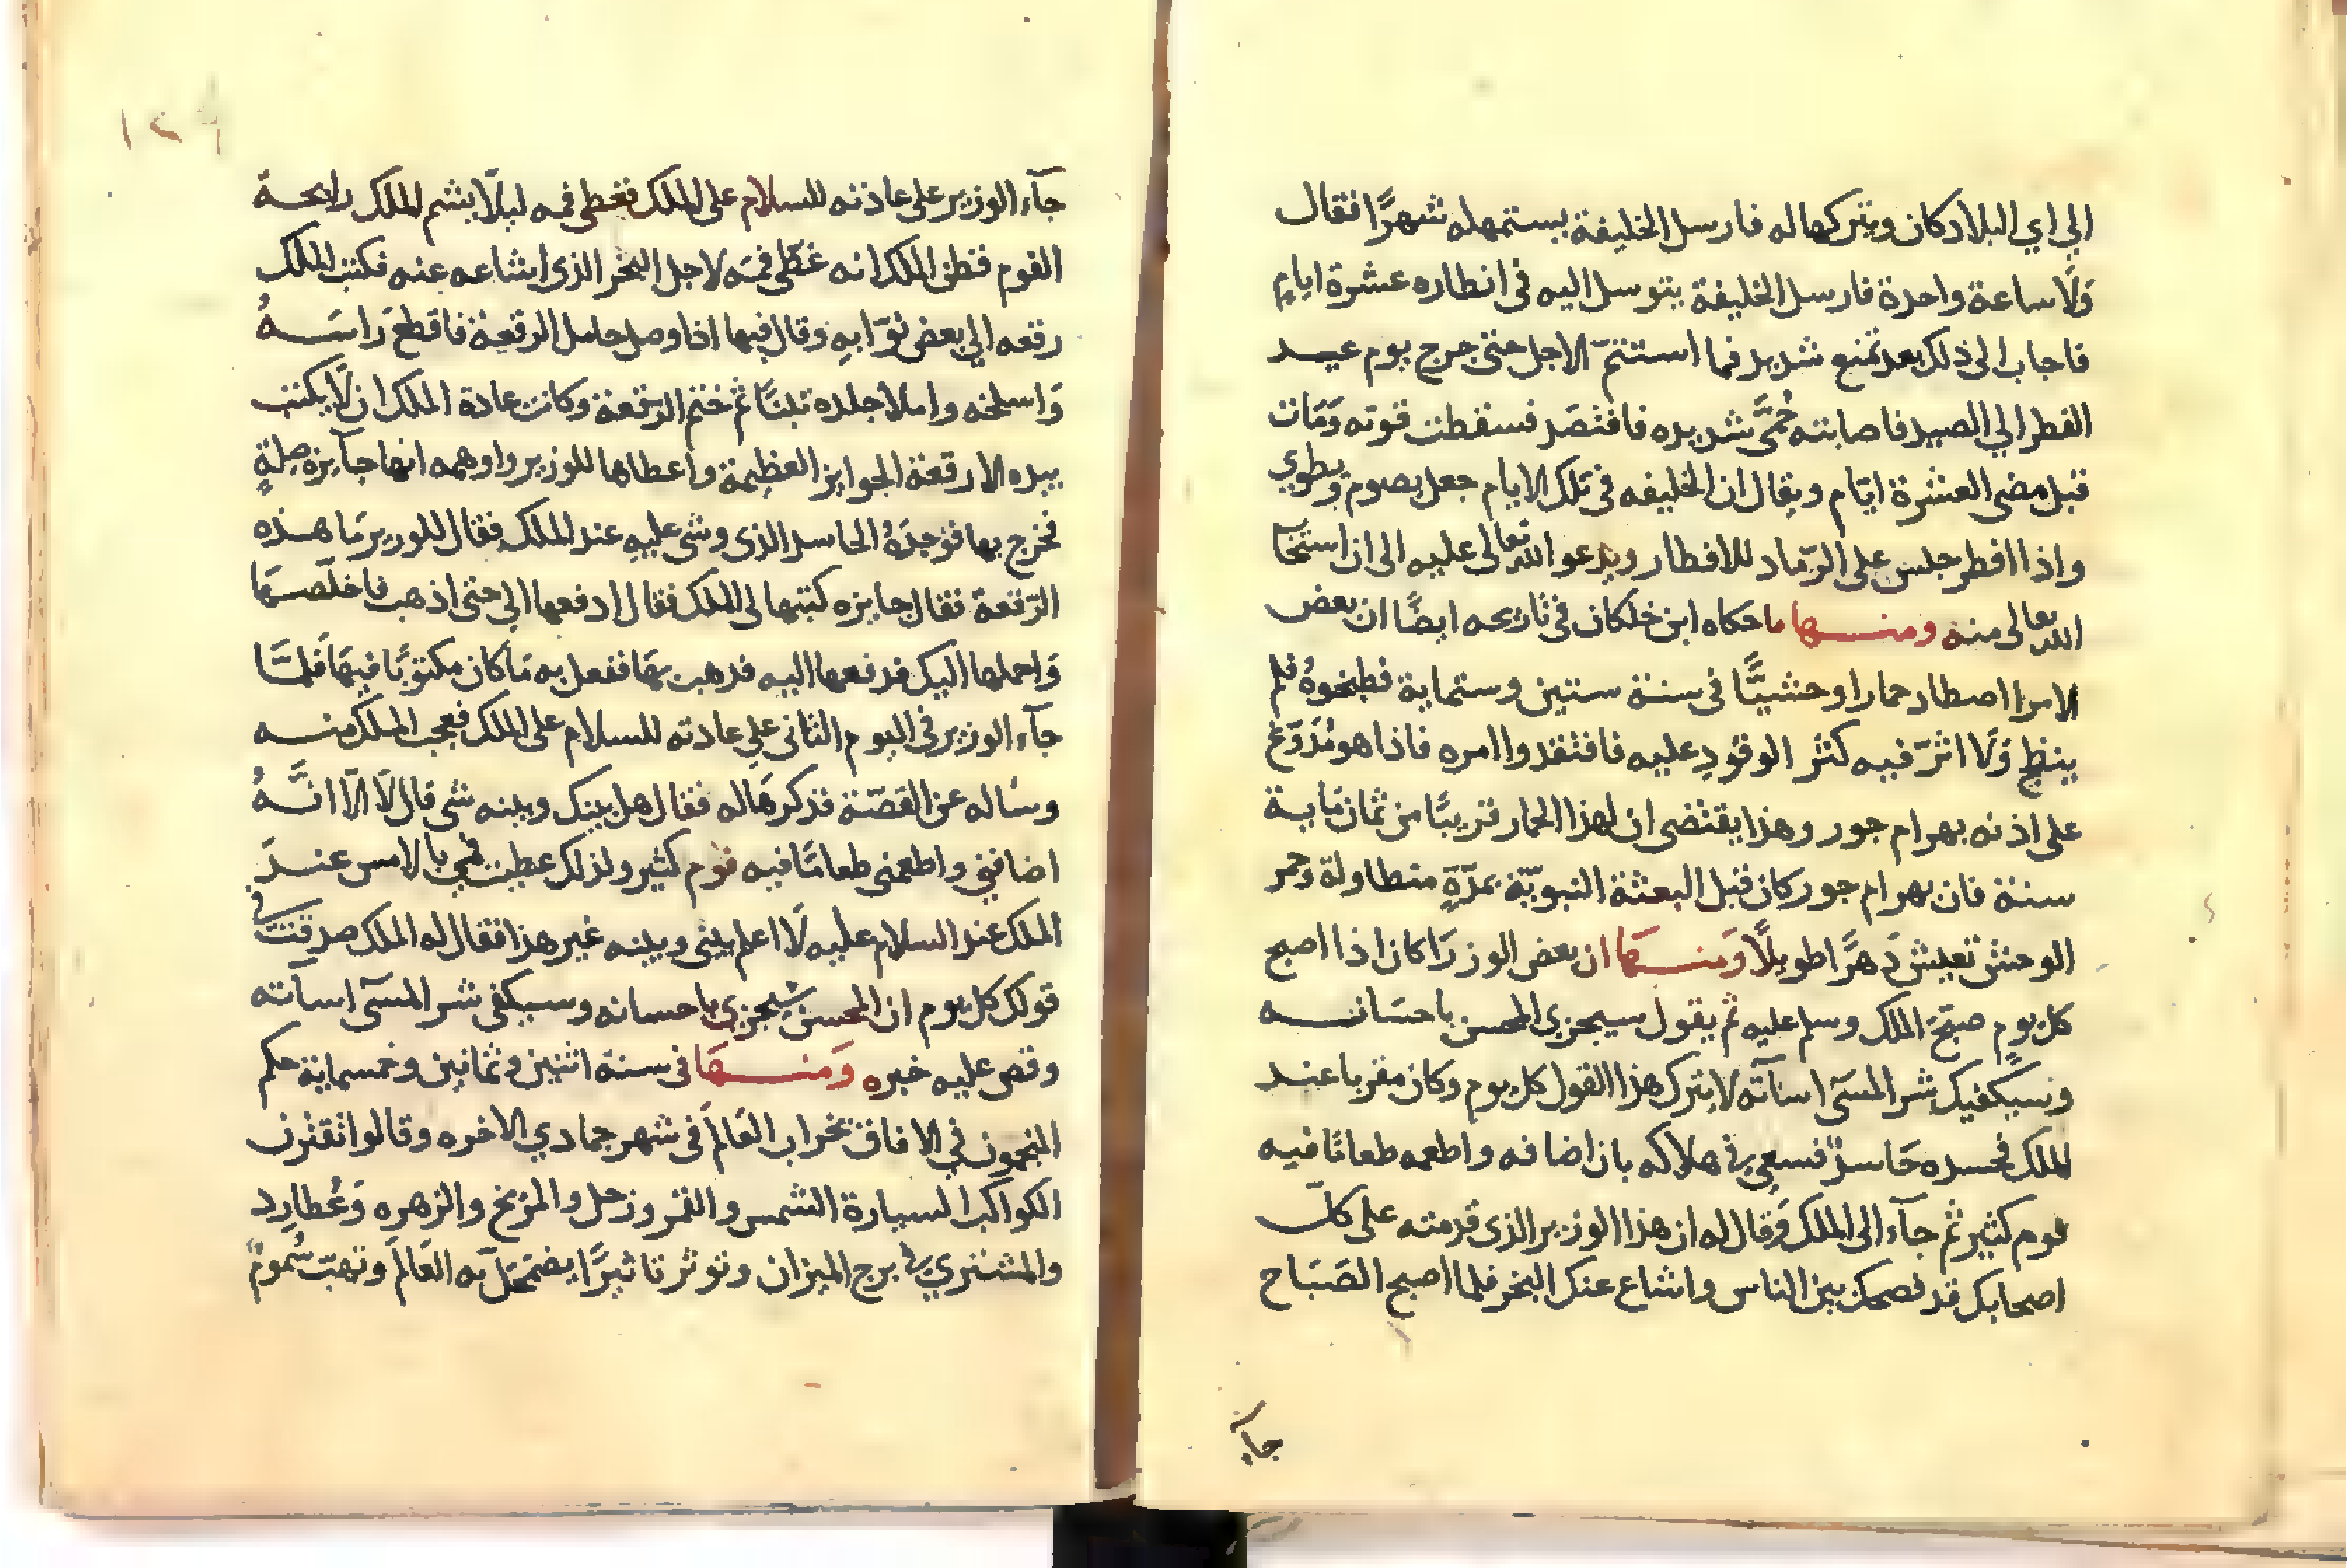 الي اي البلاد كان ويتركها له فارسل الخليفة يستمهله شهرًا فقال
وَلَا ساعة واحدة فارسل الخليفة يتوسل اليه في انطاره عشرة ايام
فاجاب الى ذلك بعد تمنع شديد فما استتمّ الاجل حتى خرج يوم عيد
الفطر الي الصيد فاصابته حُمَّى شديده فافتصَد فسقطت قوته وَمَات
قبل مضى العشرة ايّام ويقال ان الخليفه في تلك الايام جعل يصوم ويطوي
واذا افطر جلس على الرّماد للافطار ويدعوا الله تعالى عليه الى ان استجاب
الله تعالى منه ومنها ما حكاه ابن خلكان في تاريخه ايضًا ان بعض
الامرا اصطاد حمارا وحشيًّا في سنة ستين وستماية فطبخوهُ فلم
ينضج وَلَا اثرّ فيه كثر الوقودِ عليه فافتقدوا امره فاذا هو مُدَوَّغ
على اذنه بهرام جور وهذا يقتضى ان لهذا الحمار قريبًا من ثمان ماية
سنة فان بهرام جور كان قبل البعثة النبويّة بمدّةٍ متطاولة وحمر
الوحش تعيش دَهرًا طويلًا وَمنهَا ان بعض الوزرَا كان اذا اصبح
كل يوم صبّحَ الملك وسلم عليه ثم يقول سيجزى المحسن باحسَانه
وسيكفيك شر المسَى اسآته لا يترك هذا القول كل يوم وكان مقربا عند
الملك فحسده حَاسدٌ فسعى في هلاكه بان اضافه واطعمه طعامًا فيه
ثوم كثير ثم جآء الى الملك وَقال له ان هذا الوزير الذى قدمته على كل
اصحابك قد فضحك بين الناس واشاع عنك البخر فلما اصبح الصَبَاح
جآء
١٢٩
جآء الوزير على عادته للسلام على الملك فغطى فمه ليلّا يشم الملك رايحة
الثوم فظن الملك انه غطّى فمَه لاجل البخر الذى اشاعه عنه فكتب الملك
رقعه الي بعض نوّابهِ وقال فيها اذا وصل حامل الرقعة فاقطع رَاسَهُ
وَاسلخه واملا جلده تبنًا ثم ختم الرقعة وكانت عادة الملك ان لَا يكتب
بيده الا رقعة الجوايز العظِيمة واعطاها للوزير واوهمه انها جآيزه صِلةٍ
فخرج بها فوَجدَهُ الحاسد الذى وشى عليهِ عند الملك فقال للوزير مَا هذه
الرّقعة فقال جايزه كتبها لى الملك فقال ادفعها الي حتى اذهب فاخلّصهَا
وَاحملها اليك فدفعها اليه فذهب بهَا ففعل به مَا كان مكتوبًا فيهَا فَلمَّا
جآء الوزير في اليوم الثانى علي عادته للسلام على الملك فعجب الملك منه
وساله عن القصّة فذكرهَا له فقال هل بينك وبينه شى قال لَا الّا انَّهُ
اضافني واطعمنى طعامًا فيه ثوم كثير ولذلك غطيت فمي بالامس عندَ
الملك عند السلام عليه لَا اعلم بينى وبينه غير هذا فقال له الملك صدقتَ في
قولك كل يوم ان المحسن سيجزى باحسانه وسيكفى شر المسَى اسآته
وقص عليه خبره وَمنهَا في سنة اثنين وثمانين وخمسماية حكم
المنجمون في الافاق بخراب العَالم في شهر جمادي الاخره وقالوا تقترن
الكواكب السيارة الشمس والقمر وزحل والمريخ والزهره وَعُطارِد
والمشتري في برج الميزان وتوثر تاثيرًا يضمَحلّ به العَالمَ وتهبّ سُموم